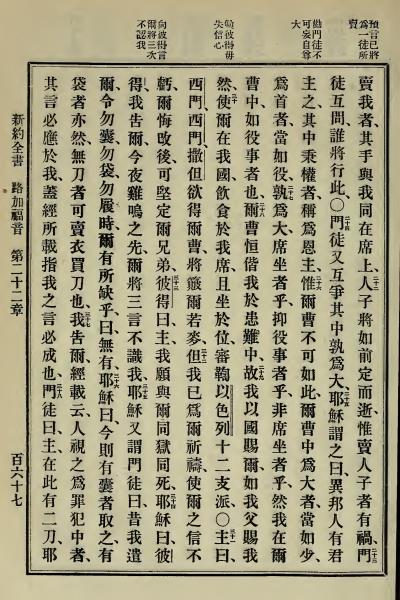 預言已將
爲一徒所
賣
勸門徒不
可妄自尊
大
勉彼得毋
失信心
向彼得言
爾將三次
不認我
賣我者、其手與我同在席上、人子將如前定而逝、惟賣人子者有禍、門
徒互問、誰將行此、○門徒又互爭其中孰爲大、耶穌謂之曰、異邦人有君
主之、其中秉權者、稱爲恩主、惟爾曹不可如此、爾曹中爲大者、當如少、
爲首者、當如役、孰爲大、席坐者乎、抑役事者乎、非席坐者乎、然我在爾
曹中如役事者也、爾曹恒偕我於患難中、故我以國賜爾、如我父賜我
然、使爾在我國飲食於我席、且坐於位、審鞫以色列十二支派、○主曰、
西門西門、撒但欲得爾曹、將簸爾若麥、但我已爲爾祈禱、使爾之信不
虧、爾悔改後、可堅定爾兄弟、彼得曰、主、我願與爾同獄同死、耶穌曰、彼
得、我吿爾、今夜雞鳴之先、爾將三言不識我、耶穌又謂門徒曰、昔我遣
爾、令勿囊、勿袋、勿履、時爾有所缺乎、曰、無有、耶穌曰、今則有囊者取之、有
袋者亦然、無刀者可賣衣買刀也、我吿爾、經載云、人視之爲罪犯中者、
其言必應於我、蓋經所載指我之言必成也、門徒曰、主、在此有二刀、耶
新約全書 路加福音 第二十二章 百六十七